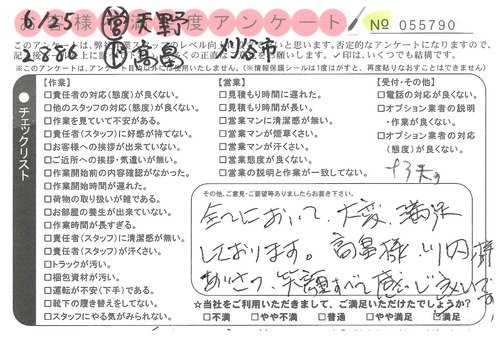 6/25 営 天野
お客様満足度アンケート
№ 055790
2886 作 高畠 刈谷市
※このアンケートは、アンケート目的以外には使用いたしません。(※情報保護シールは1度はがすと、再度貼りなおすことはできません)
チェックリスト
【作業】
□責任者の対応(態度)が良くない。
□他のスタッフの対応(態度)が良くない。
□作業を見ていて不安がある。
□責任者(スタッフ)に好感が持てない。
□お客様への挨拶が出来ていない。
□ご近所への挨拶・気遣いが無い。
□作業開始前の内容確認がなかった。
□作業開始時間が遅れた。
□荷物の取り扱いが雑である。
□お部屋の養生が出来ていない。
□作業時間が長すぎる。
□責任者(スタッフ)に清潔感が無い。
□責任者(スタッフ)が汗くさい。
□トラックが汚い。
□梱包資材が汚い。
□運転が不安(下手)である。
□靴下の履き替えをしてない。
□スタッフにやる気がみられない。
【営業】
□見積もり時間に遅れた。
□見積もり時間が長い。
□営業マンに清潔感が無い。
□営業マンが煙草くさい。
□営業マンが汗くさい。
□営業態度が良くない。
□営業の説明と作業が一致してない。
【受付・その他】
□電話の対応が良くない。
□オプション業者の説明
・作業が良くない。
□オプション業者の対応
(態度)が良くない。
その他、ご意見・ご要望等ありましたらお書き下さい。
全てにおいて、大変、満足
しております。高畠様、川内様
あいさつ、笑顔すべて
☆当社をご利用いただきまして、ご満足いただけたでしょうか?
□不満 □やや不満 □普通 □やや満足 □満足